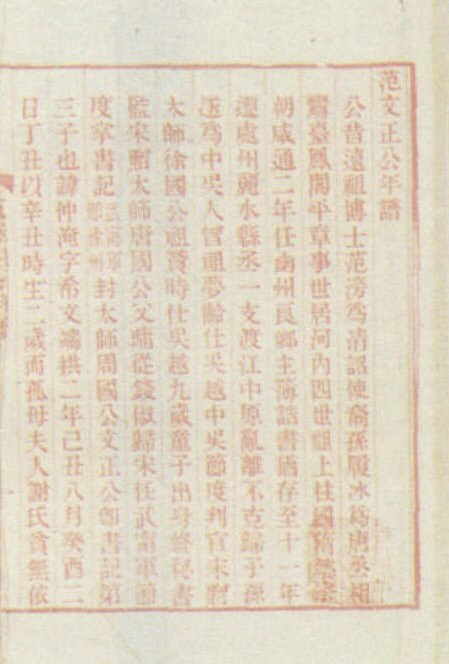 范文正公年譜
公昔遠祖博士范滂為清詔使裔孫履冰為唐丞相
鸞臺鳳閣平章事世居河內四世祖上柱國
朝咸通二年任幽州良鄉主簿誥書猶存至十一年
遷處州麗水縣丞一支渡江中原亂離不克歸子孫
遂為中吳人曾祖夢齡仕吳越中吳節度判官宋贈
太師徐國公祖贊時仕吳越九歲童子出身終秘書
監宋贈太師唐國公父墉從錢俶歸宋任武甯軍節
度掌書記封太師周國公文正公即書記第
三子也諱仲淹字希文端拱二年己丑八月癸酉二
日丁丑以辛丑時生二歲而孤母夫人謝氏貧無依